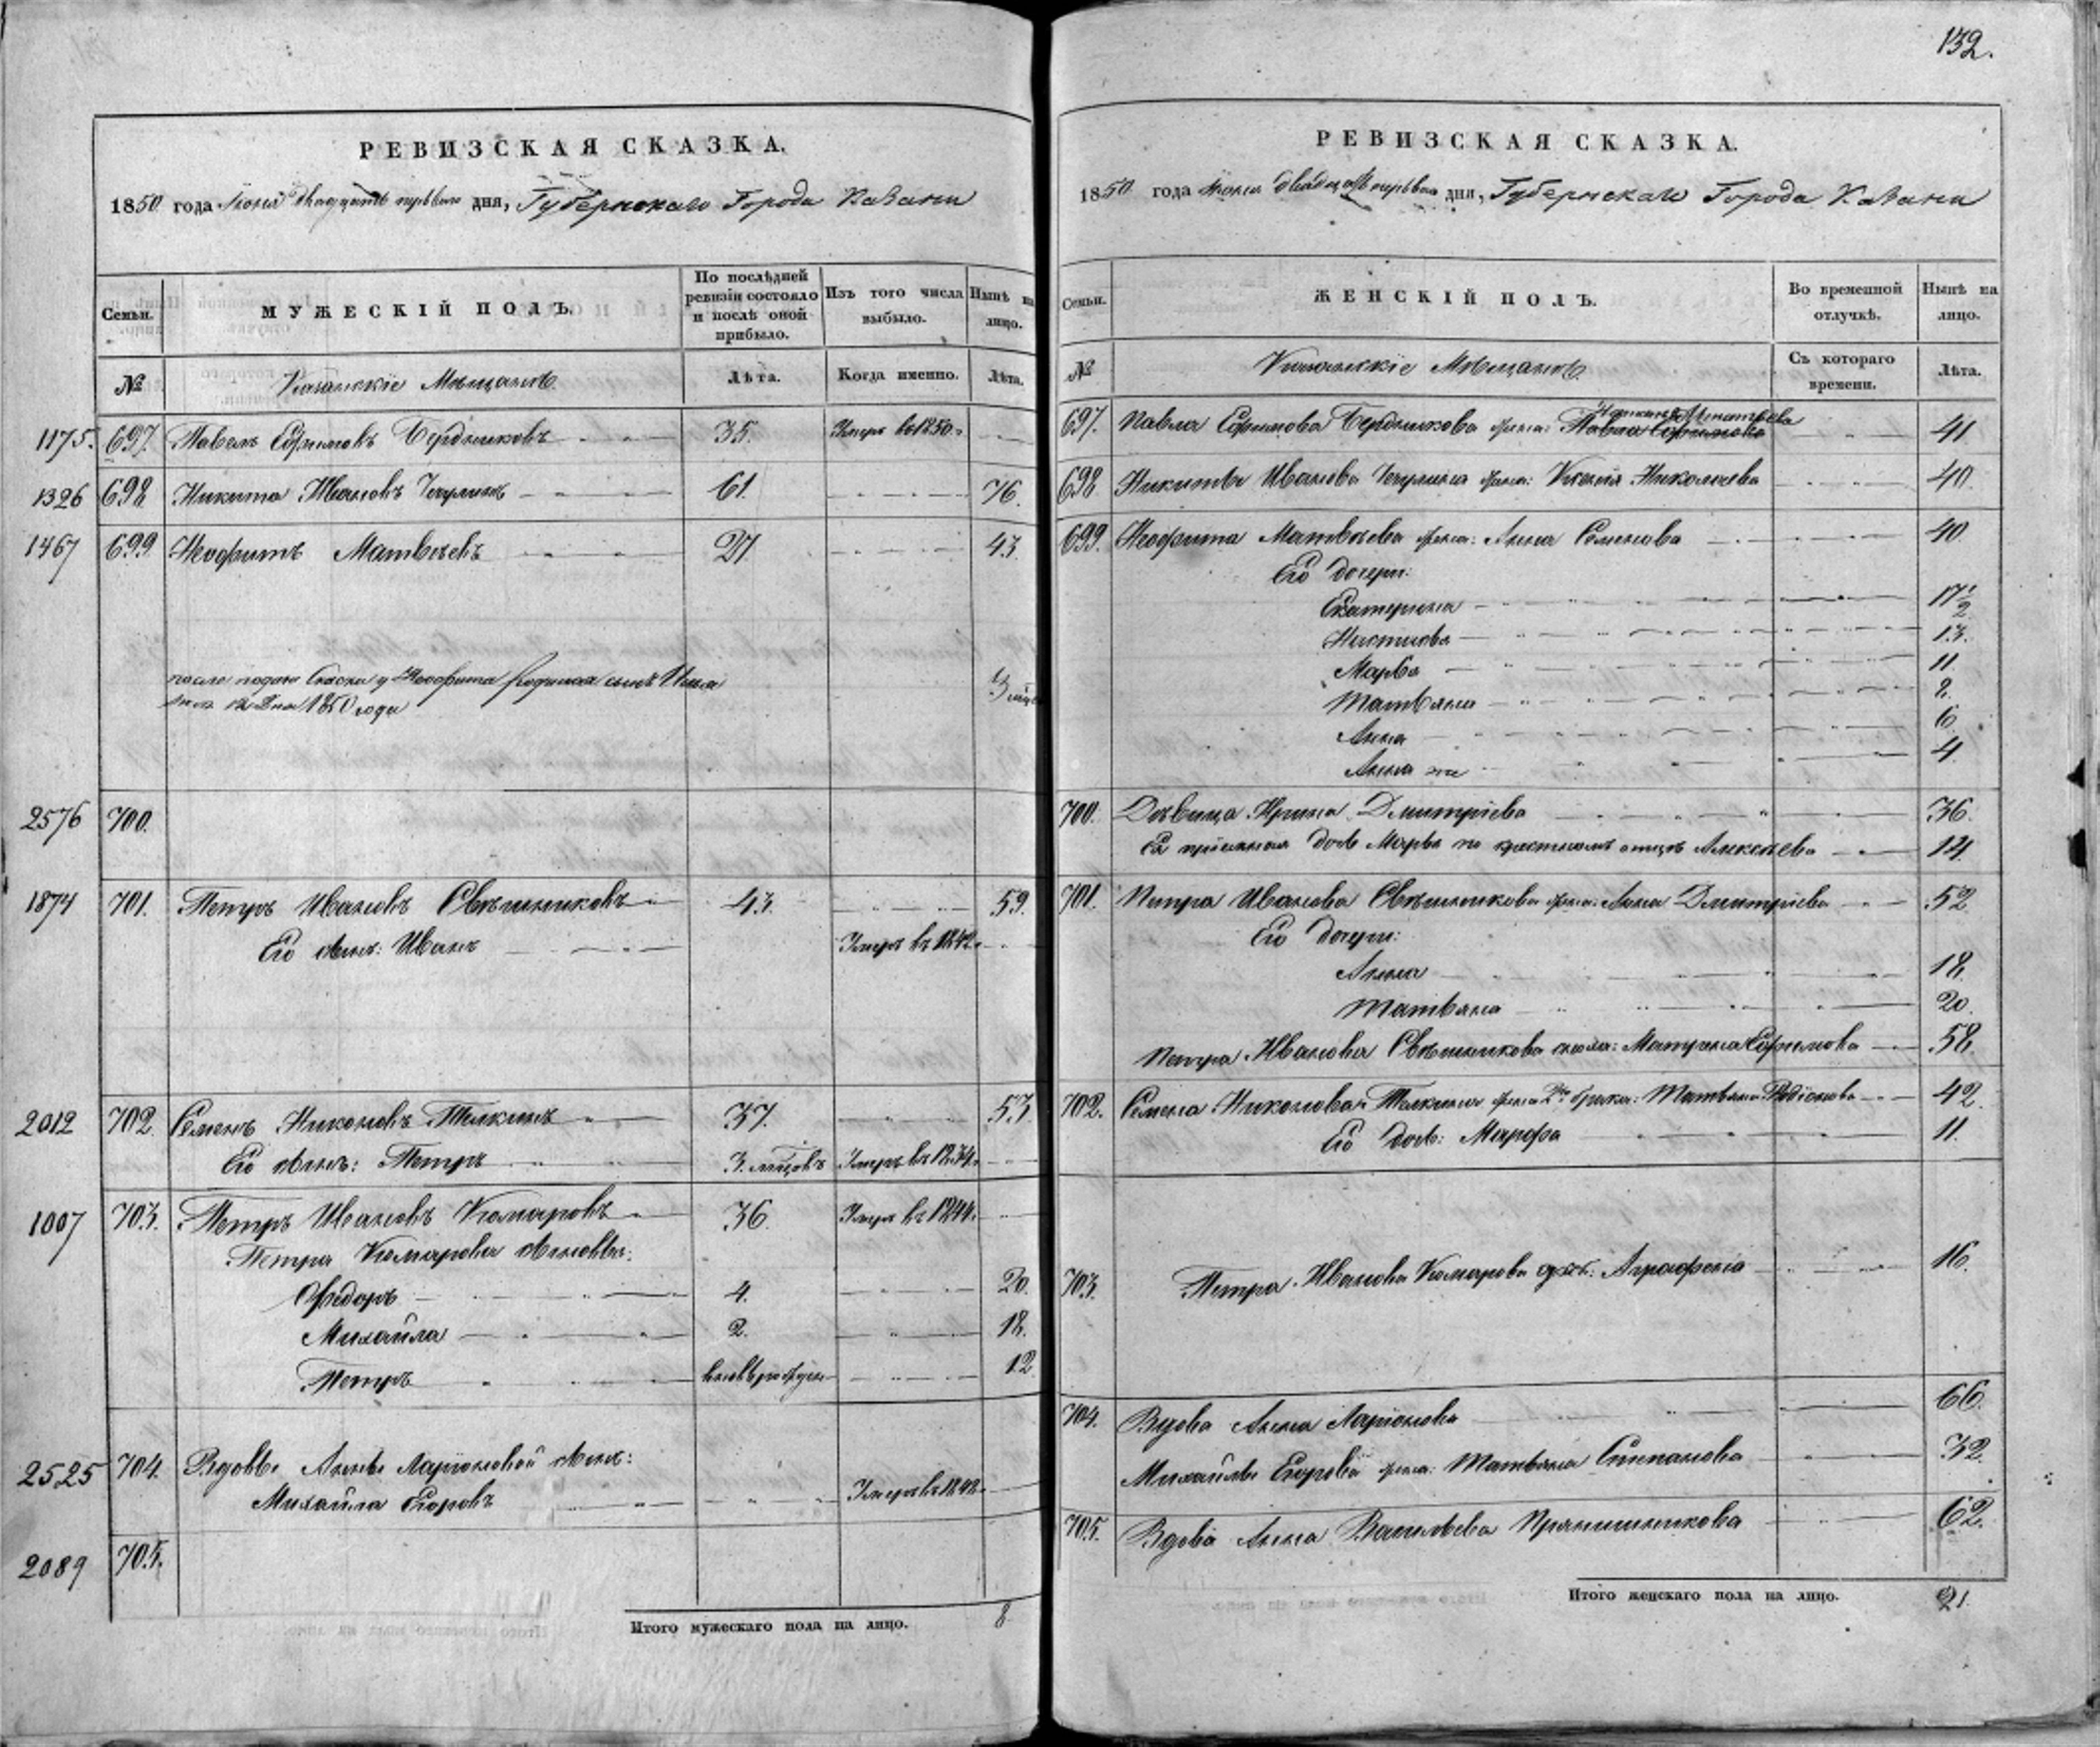 РЕВИЗСКАЯ СКАЗКА.
1850 года Июня двадцать перваго дня, Губернскаго Города Казани
Семьи. МУЖЕСКІЙ ПОЛЪ. По послѣдней ревизіи состояло и послѣ оной прибыло. Изъ того числа выбыло. Нынѣ на лицо.
№ Казанскіе Мѣщанѣ Лѣта. Когда именно. Лѣта.
1175. 697. Павелъ Ефимовъ Бердниковъ 35. Умеръ въ 1850.
1326 698 Никита Ивановъ 61. 76.
1467 699 Неофитъ Матвѣевъ 27. 43.
после подачи Сказки у Неофита родился сынъ
1850 года 3
2576 700.
1874 701. Петръ Ивановъ Свѣшниковъ 43. 59.
Его сынъ: Иванъ Умеръ въ 1842.
2012 702. Семенъ Никоновъ Телкинъ 37. 53.
Его сынъ: Петръ 3. мѣсяцовъ Умеръ въ 1834.
1007 703. Петръ Ивановъ Комаровъ 36. Умеръ въ 1844.
Петра Комарова сыновья:
Ѳедоръ 4. 20.
Михайла 2. 18.
Петръ вновь рожден 12
2525 704. Вдовы Анны Ларіоновой сынъ:
Михайла Егоровъ Умеръ въ 1848.
2089 705.
Итого мужескаго пола на лицо. 8
132.
РЕВИЗСКАЯ СКАЗКА.
1850 года Июня двадцать перваго дня, Губернскаго Города Казани
Семьи. ЖЕНСКІЙ ПОЛЪ. Во временной отлучкѣ. Нынѣ на лицо.
№ Казанскіе Мѣщанѣ Съ котораго времени. Лѣта.
697. Павла Ефимова Бердникова жена: Павла Ефимова 41
698 Никиты Иванова жена: Ксенія Николаева 40.
699. Неофита Матвѣева жена: Анна Семенова 40
Его дочери:
Екатерина 17 1/2
13.
Марья 11
Татьяна 8.
Анна 6
Анна же 4.
700. Дѣвица Ирина Дмитріева 36.
Ея пріемная дочь Марья по крестномъ отцѣ Алексѣева 14.
701. Петра Иванова Свѣшникова жена: Анна Дмитріева 52
Его дочери:
Анна 18.
Татьяна 20.
Петра Иванова Свѣшникова сноха: Матрена Ефимова 58.
702. Семена Никонова Телкина жена 2го брака: Татьяна Родіонова 42.
Его дочь: Марфа 11.
703. Петра Иванова Комарова дочь: Аграфена 16.
704. Вдова Анна Ларіонова 66
Михайлы Егорова жена: Татьяна Степанова 32.
705. Вдова Анна Васильева Прянишникова 62.
Итого женскаго пола на лицо. 21.